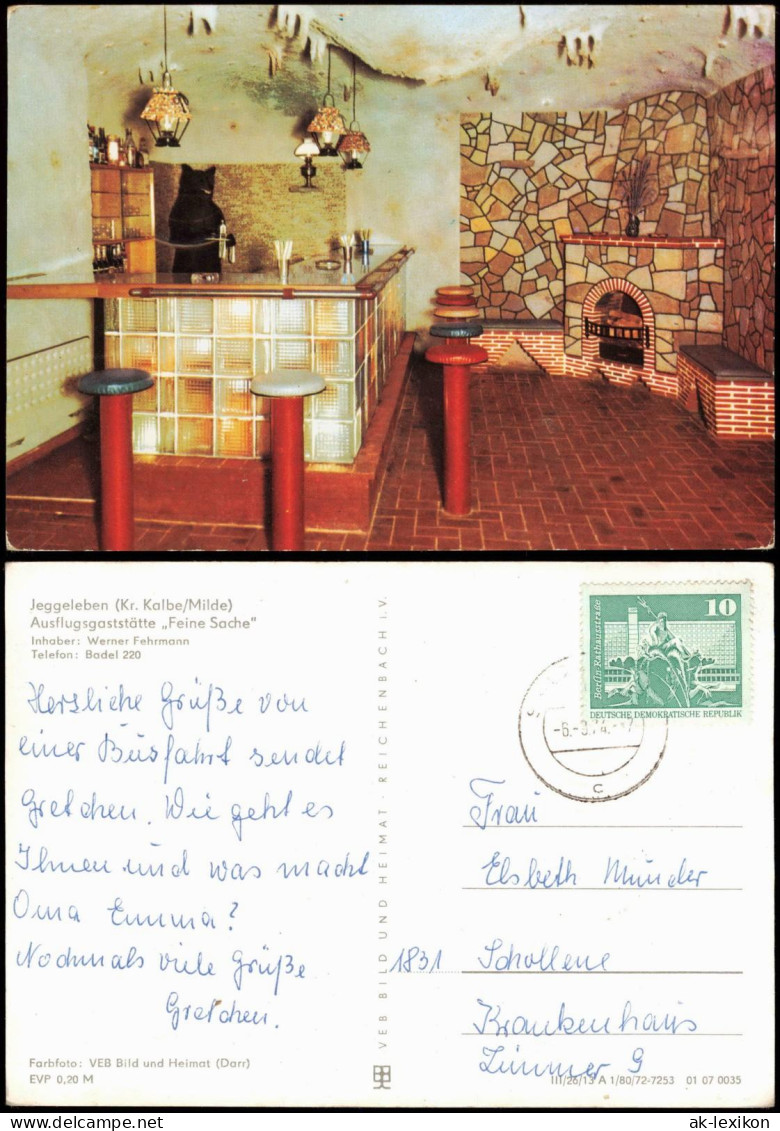 Jeggeleben (Kr. Kalbe/Milde)
Ausflugsgaststätte „Feine Sache"
Inhaber: Werner Fehrmann
Telefon: Badel 220
Herzliche Grüße von
einer Busfahrt sendet
Gretchen. Wie geht es
Ihnen und was macht
Oma Emma?
Nochmals viele Grüße
Gretchen.
Farbfoto: VEB Bild und Heimat (Darr)
EVP 0,20 M
VEB BILD UND HEIMAT · REICHENBACH I.V.
10
Berlin Rathausstraße
DEUTSCHE DEMOKRATISCHE REPUBLIK
c
Frau
Elsbeth Münder
1831 Schollene
Krankenhaus
Zimmer 9
III/26/13 A 1/80/72-7253 01 07 0035
ak-lexikon.com